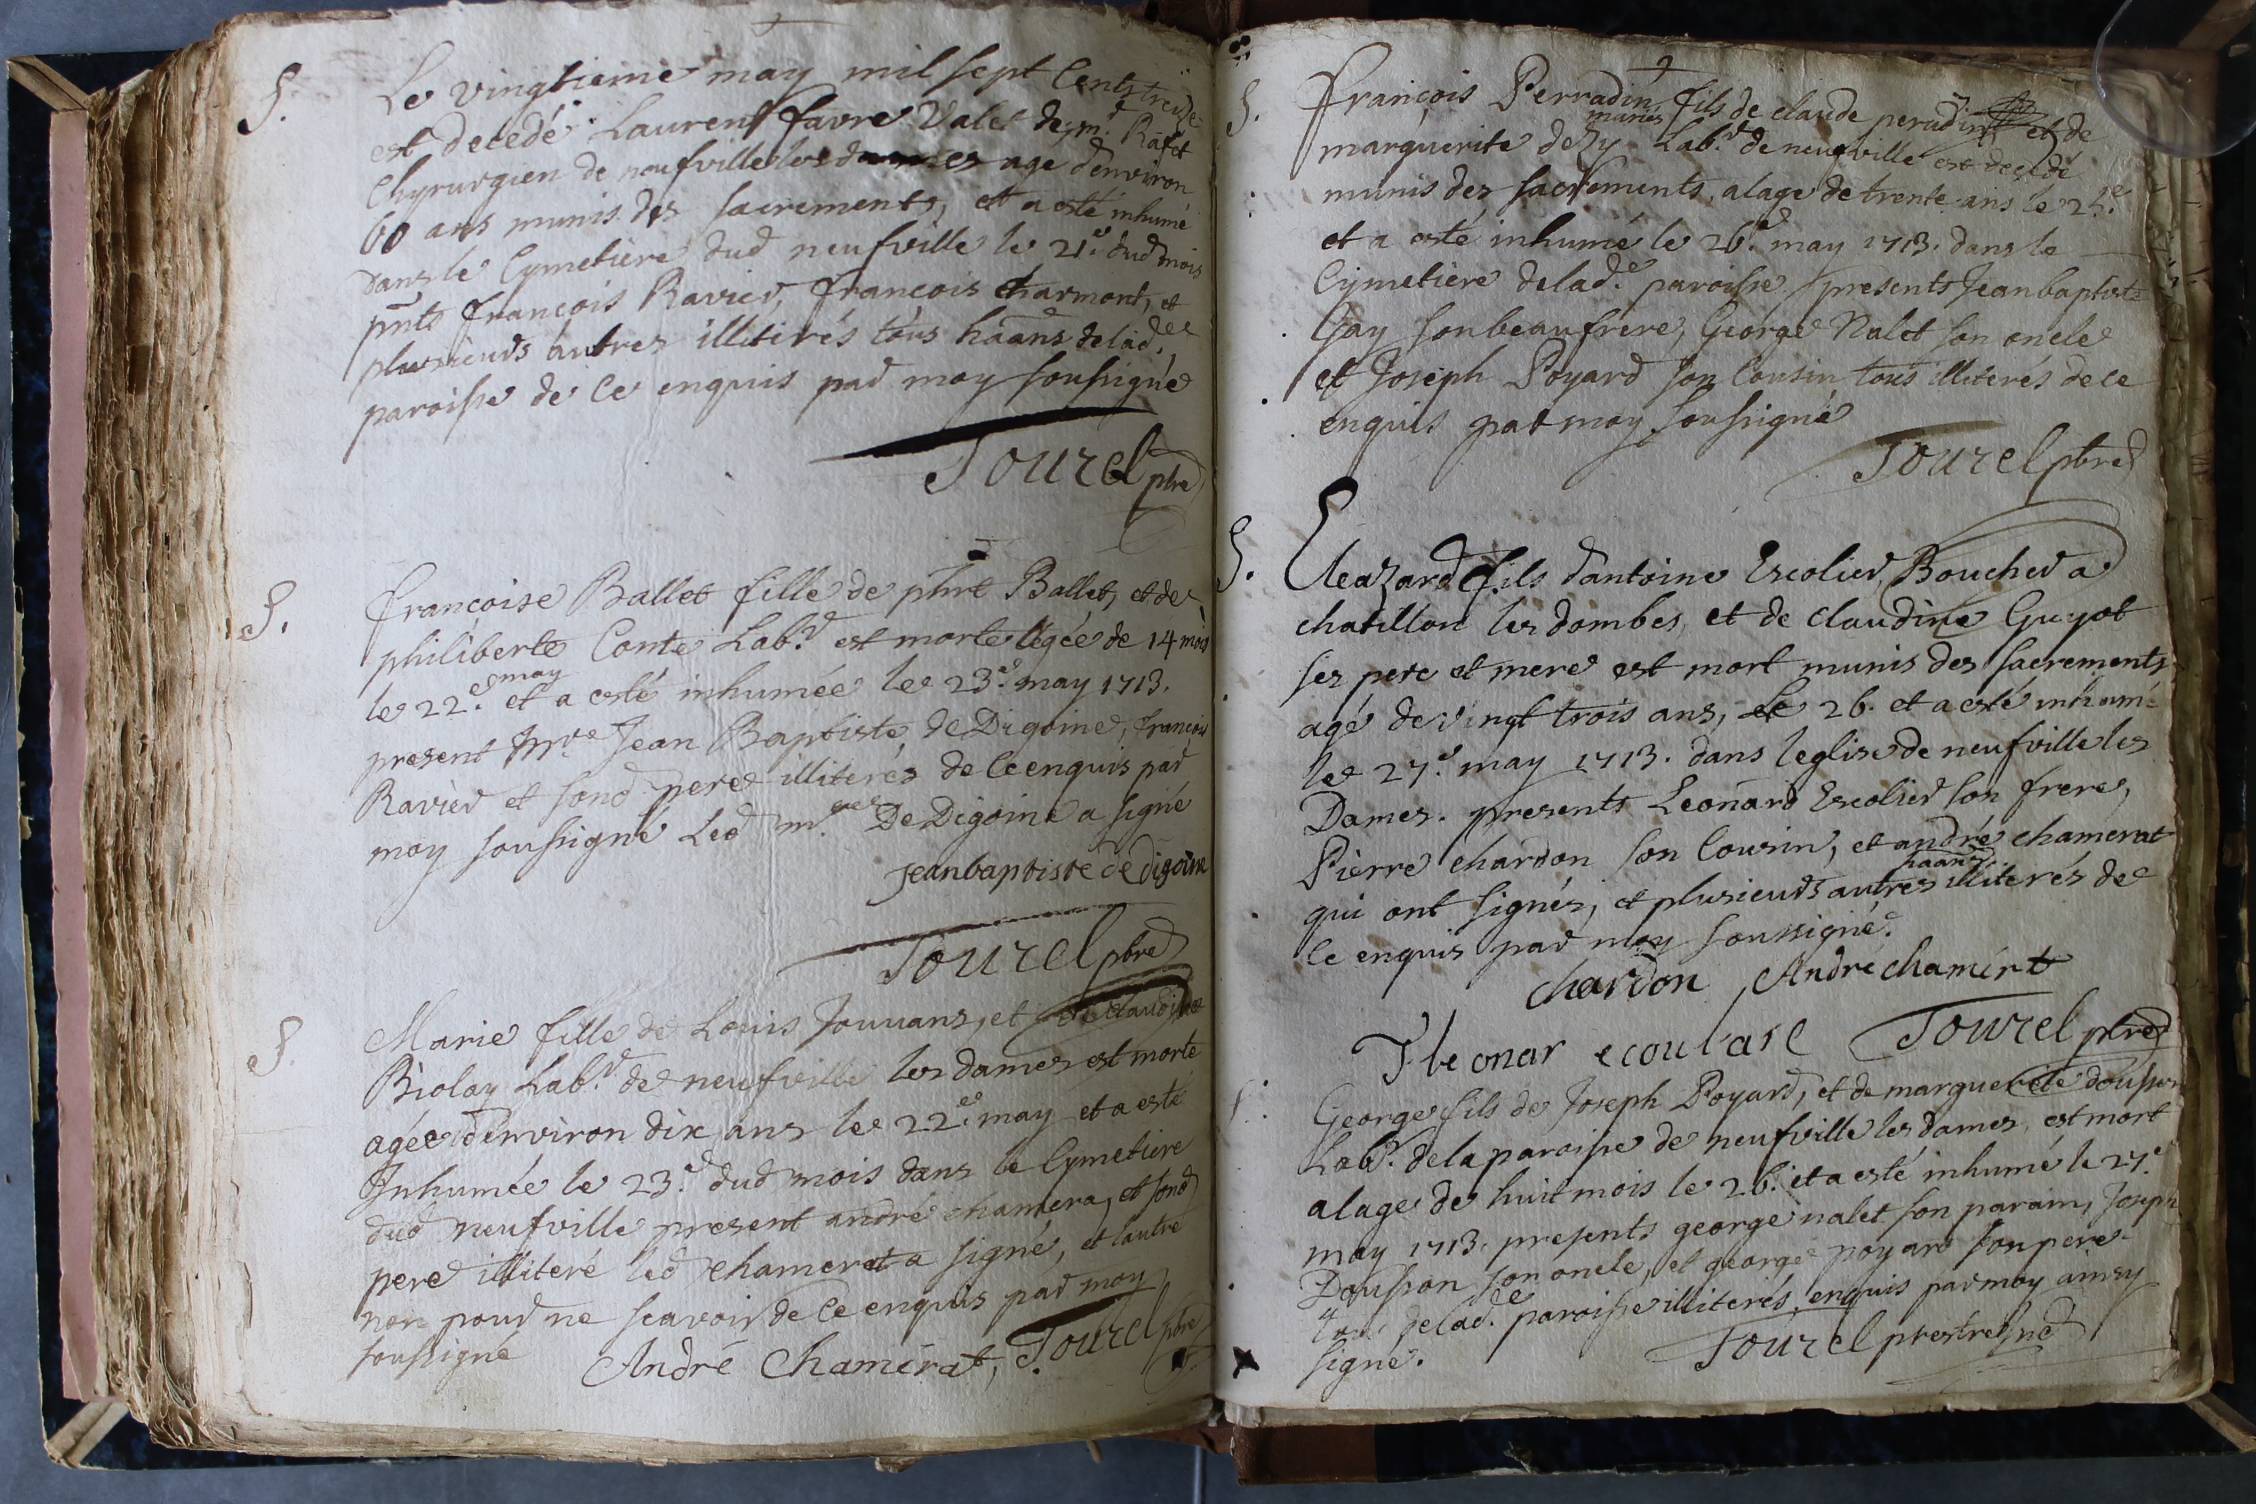 S.
Le vingtieme may mil sept Cents treize
est decedé Laurent favre Valet de mr. Rafet
Chyrurgien de neufville les dames age d'environ
60 ans munis des sacrements, et a esté inhumé
dans le Cymetiere dud neufville le 21e. dud mois
pnts françois Ravier, francois Charmont, et
plusieurs autres illiterés tous haans de lad.
paroisse de ce enquis par moy soussigné
Tourel pbre
S.
françoise Ballet fille de phrt Ballet, et de
philiberte Conte Labr. est morte agée de 14 mois
le 22e. may et a esté inhumée le 23e. may 1713.
present Mre Jean Baptiste de Digoine, francois
Ravier et sond pere illiterés de ce enquis par
moy soussigné Led mre De Digoine a signé
jeanbaptiste de digoine
Tourel pbre
S.
Marie fille de Louis Jouvans, et de claudine
Biolay Labr. de neufville les dames est morte
agée d'environ dix ans le 22e. may et a esté
Inhumée le 23e. dud mois dans le Cymetiere
dud neufville present andré chamera, et sond
pere illiteré led chamerat a signé, et lautre
non pour ne scavoir de ce enquis par moy
soussigné André Chamérat, Tourel pbre
S.
François Perradin fils de claude peradin et de
marguerite dery mariés Labr. de neufville est decedé
munis des sacrements, a lage de trente ans le 25e.
et a esté inhumé le 26e may 1713. dans le
Cymetiere de lade. paroisse presents Jean baptiste
Gay son beaufrere, George Nalet son oncle
et Joseph Poyard son Cousin tous illiterés de ce
enquis par moy soussigné
Tourel pbre
S.
Eleazard fils d'antoine Escolier Boucher a
chatillon les dombes, et de claudine Guyot
ses pere et mere est mort munis des sacrements
agé de vingt trois ans, Le 26. et a esté inhumé
le 27e. may 1713. dans leglise de neufville les
Dames. presents Leonard Escolier son frere,
Pierre chardon son Cousin, et andré chamerat
qui ont signés, et plusieurs autres haans illiterés de
ce enquis par moy soussigné.
chardon André chamérat
leonar ecoulare Tourel pbre
George fils de Joseph Poyard, et de marguerite dousson
Labr. de la paroisse de neufville les dames, est mort
a lage de huit mois le 26. et a esté inhumé le 27e.
may 1713. presents george nalet son parain, Joseph
Dousson son oncle, et george poyard son pere
tous de lade. paroisse illiterés, enquis par moy ainsy
signé. Tourel prestre